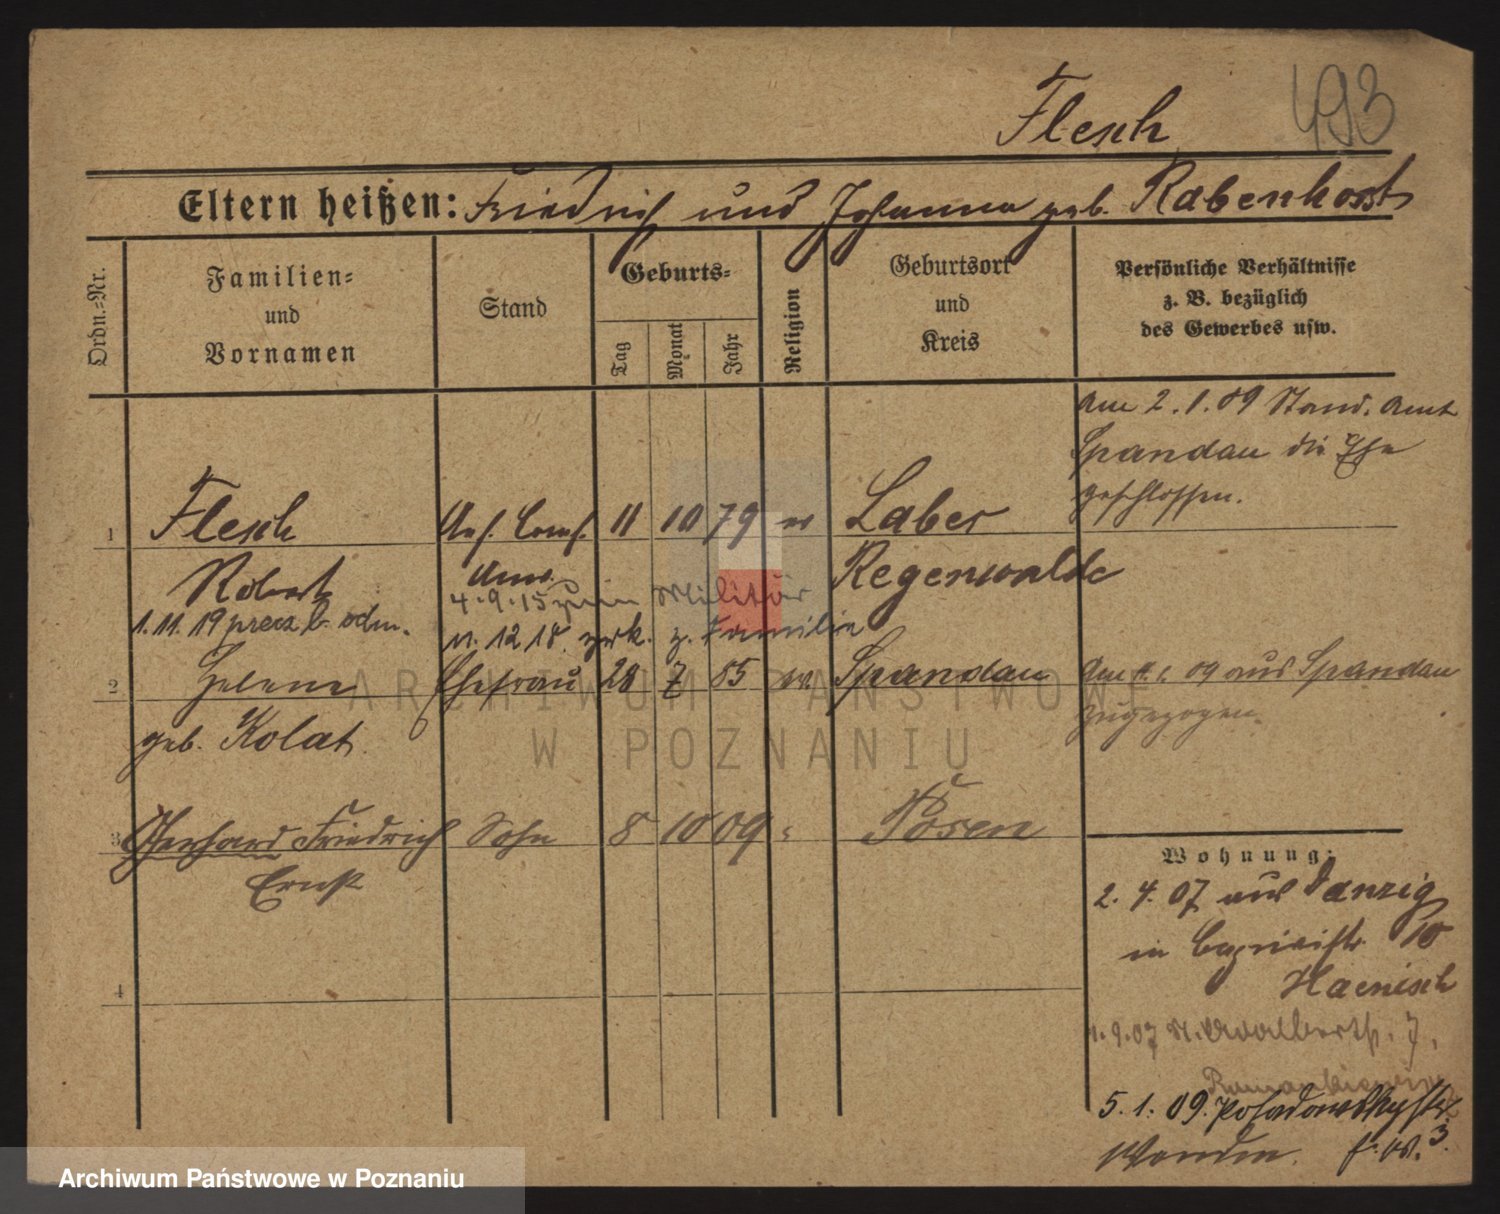 Flesch 493
Eltern heißen: Friedrich und Johanna geb. Rabenhorst
Ordn.-Nr.
Familien-
und
Vornamen
Stand
Geburts-
Tag
Monat
Jahr
Religion
Geburtsort
und
Kreis
Persönliche Verhältnisse
z. B. bezüglich
des Gewerbes usw.
Am 2.1.09 Stand. Amt
Spandau die Ehe
geschlossen.
1 Flesch 11 10 79 ev Labes
Robert Anw. Regenwalde
4.9.15 zum Militär
1.11.19 b. odm.
12 18 zrk. z. Familie
2 Helene Ehefrau 28 7 85 ev. Spandau
geb. Kolat
Am 1. 09 aus Spandau
zugezogen.
3 Gerhard Friedrich Sohn 8 10 09 Posen
Ernst
4
Wohnung:
2.4.07 aus Danzig
in Caprivistr. 10
Haenisch
1.9.07 7.
5.1.09. Posadowskystr.
3.
ARCHIWUM PAŃSTWOWE
W POZNANIU
Archiwum Państwowe w Poznaniu